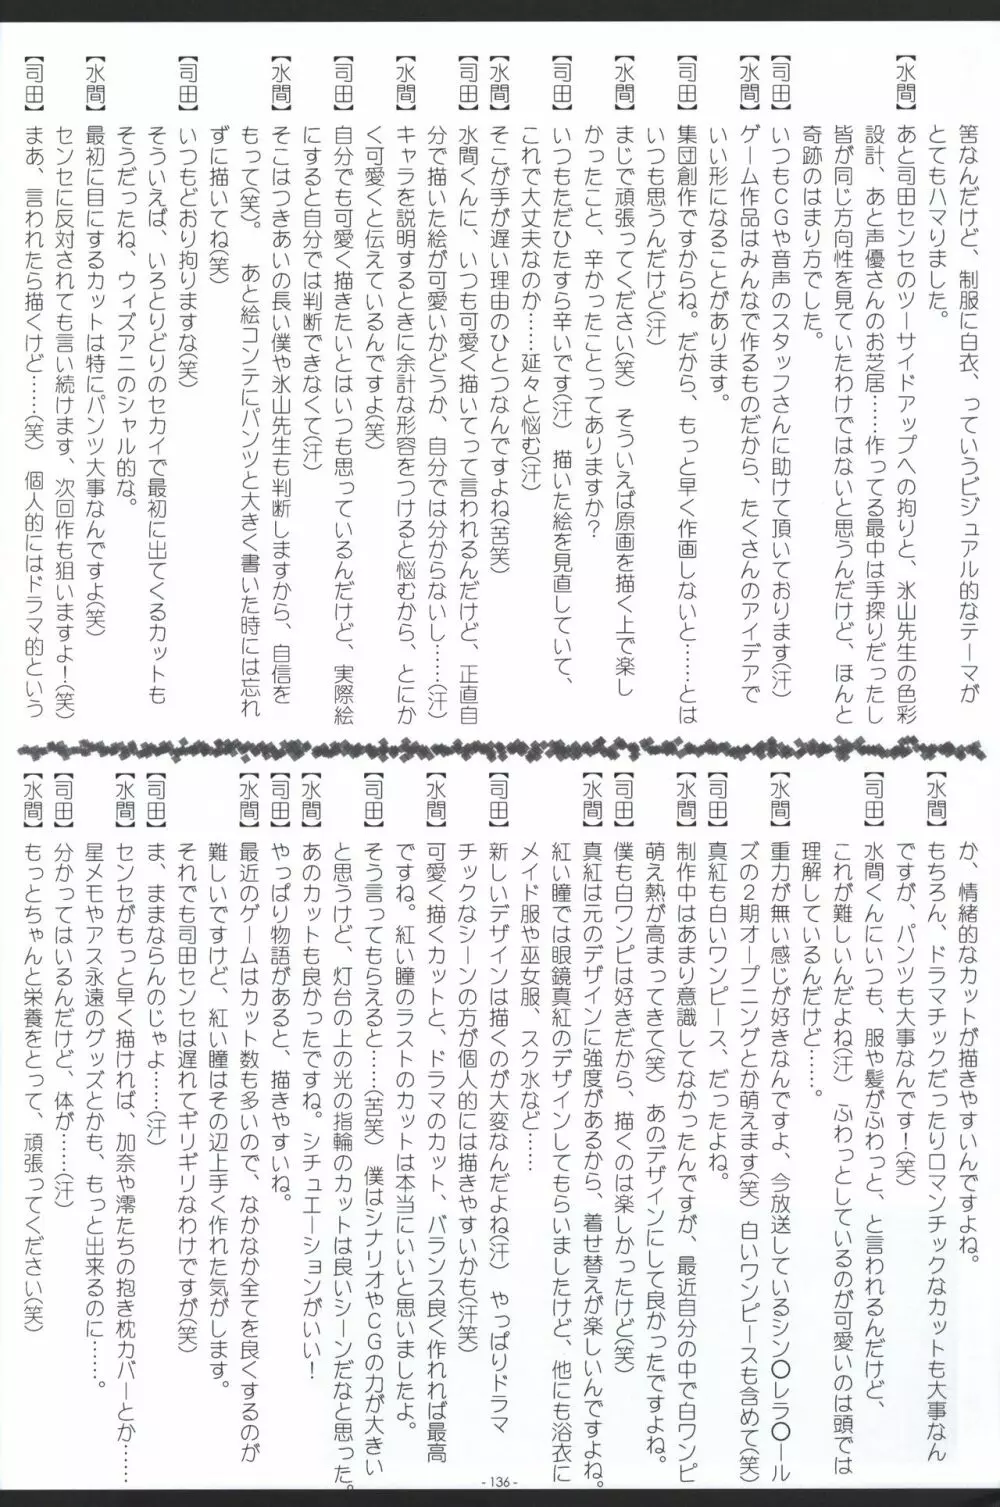 筈なんだけど、制服に白衣、っていうビジュアル的なテーマが
とてもハマりました。
【水間】あと司田センセのツーサイドアップへの拘りと、氷山先生の色彩
設計、あと声優さんのお芝居……作ってる最中は手探りだったし
皆が同じ方向性を見ていたわけではないと思うんだけど、ほんと
奇跡のはまり方でした。
【司田】いつもCGや音声のスタッフさんに助けて頂いております(汗)
【水間】ゲーム作品はみんなで作るものだから、たくさんのアイデアで
いい形になることがあります。
【司田】集団創作ですからね。だから、もっと早く作画しないと……とは
いつも思うんだけど(汗)
【水間】まじで頑張ってください(笑)　そういえば原画を描く上で楽し
かったこと、辛かったことってありますか？
【司田】いつもただひたすら辛いです(汗)　描いた絵を見直していて、
これで大丈夫なのか……延々と悩む(汗)
【水間】そこが手が遅い理由のひとつなんですよね(苦笑)
【司田】水間くんに、いつも可愛く描いてって言われるんだけど、正直自
分で描いた絵が可愛いかどうか、自分では分からないし……(汗)
【水間】キャラを説明するときに余計な形容をつけると悩むから、とにか
く可愛くと伝えているんですよ(笑)
【司田】自分でも可愛く描きたいとはいつも思っているんだけど、実際絵
にすると自分では判断できなくて(汗)
【水間】そこはつきあいの長い僕や氷山先生も判断しますから、自信を
もって(笑)。　あと絵コンテにパンツと大きく書いた時には忘れ
ずに描いてね(笑)
【司田】いつもどおり拘りますな(笑)
そういえば、いろとりどりのセカイで最初に出てくるカットも
そうだったね、ウィズアニのシャル的な。
【水間】最初に目にするカットは特にパンツ大事なんですよ(笑)
センセに反対されても言い続けます、次回作も狙いますよ！(笑)
【司田】まあ、言われたら描くけど……(笑)　個人的にはドラマ的という
か、情緒的なカットが描きやすいんですよね。
【水間】もちろん、ドラマチックだったりロマンチックなカットも大事なん
ですが、パンツも大事なんです！(笑)
【司田】水間くんにいつも、服や髪がふわっと、と言われるんだけど、
これが難しいんだよね(汗)　ふわっとしているのが可愛いのは頭では
理解しているんだけど……。
【水間】重力が無い感じが好きなんですよ、今放送しているシン〇レラ〇ール
ズの２期オープニングとか萌えます(笑)　白いワンピースも含めて(笑)
【司田】真紅も白いワンピース、だったよね。
【水間】制作中はあまり意識してなかったんですが、最近自分の中で白ワンピ
萌え熱が高まってきて(笑)　あのデザインにして良かったですよね。
【司田】僕も白ワンピは好きだから、描くのは楽しかったけど(笑)
【水間】真紅は元のデザインに強度があるから、着せ替えが楽しいんですよね。
紅い瞳では眼鏡真紅のデザインしてもらいましたけど、他にも浴衣に
メイド服や巫女服、スク水など……
【司田】新しいデザインは描くのが大変なんだよね(汗)　やっぱりドラマ
チックなシーンの方が個人的には描きやすいかも(汗笑)
【水間】可愛く描くカットと、ドラマのカット、バランス良く作れれば最高
ですね。紅い瞳のラストのカットは本当にいいと思いましたよ。
【司田】そう言ってもらえると……(苦笑)　僕はシナリオやCGの力が大きい
と思うけど、灯台の上の光の指輪のカットは良いシーンだなと思った。
【水間】あのカットも良かったですね。シチュエーションがいい！
【司田】やっぱり物語があると、描きやすいね。
【水間】最近のゲームはカット数も多いので、なかなか全てを良くするのが
難しいですけど、紅い瞳はその辺上手く作れた気がします。
それでも司田センセは遅れてギリギリなわけですが(笑)
【司田】ま、ままならんのじゃよ……(汗)
【水間】センセがもっと早く描ければ、加奈や澪たちの抱き枕カバーとか……
星メモやアス永遠のグッズとかも、もっと出来るのに……。
【司田】分かってはいるんだけど、体が……(汗)
【水間】もっとちゃんと栄養をとって、頑張ってください(笑)
- 136 -